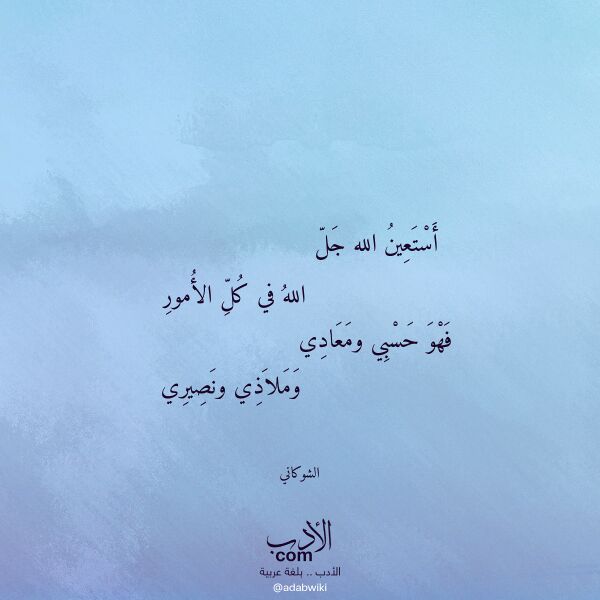 أَسْتَعِينُ الله جَلّ
اللهُ في كُلِّ الأُمورِ
فَهْوَ حَسْبِي ومَعَادِي
وَمَلاَذِي ونَصِيرِي
الشوكاني
الأدب
com
الأدب .. بلغة عربية
@adabwiki